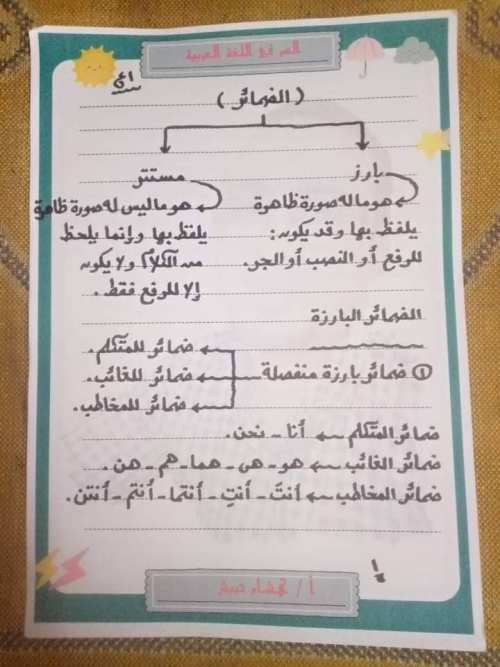 السر في اللغة العربية
(الضمائر)
بارز
مستتر
هو ما له صورة ظاهرة
يلفظ بها وقد يكون:
للرفع أو النصب أو الجر.
هو ما ليس له صورة ظاهرة
يلفظ بها وإنما يلحظ
من الكلام ولا يكون
إلا للرفع فقط.
الضمائر البارزة
① ضمائر بارزة منفصلة
ضمائر للمتكلم.
ضمائر للغائب.
ضمائر للمخاطب.
ضمائر المتكلم ← أنا - نحن.
ضمائر الغائب ← هو - هى - هما - هم - هن.
ضمائر المخاطب ← أنتَ - أنتِ - أنتما - أنتم - أنتن.
أ /